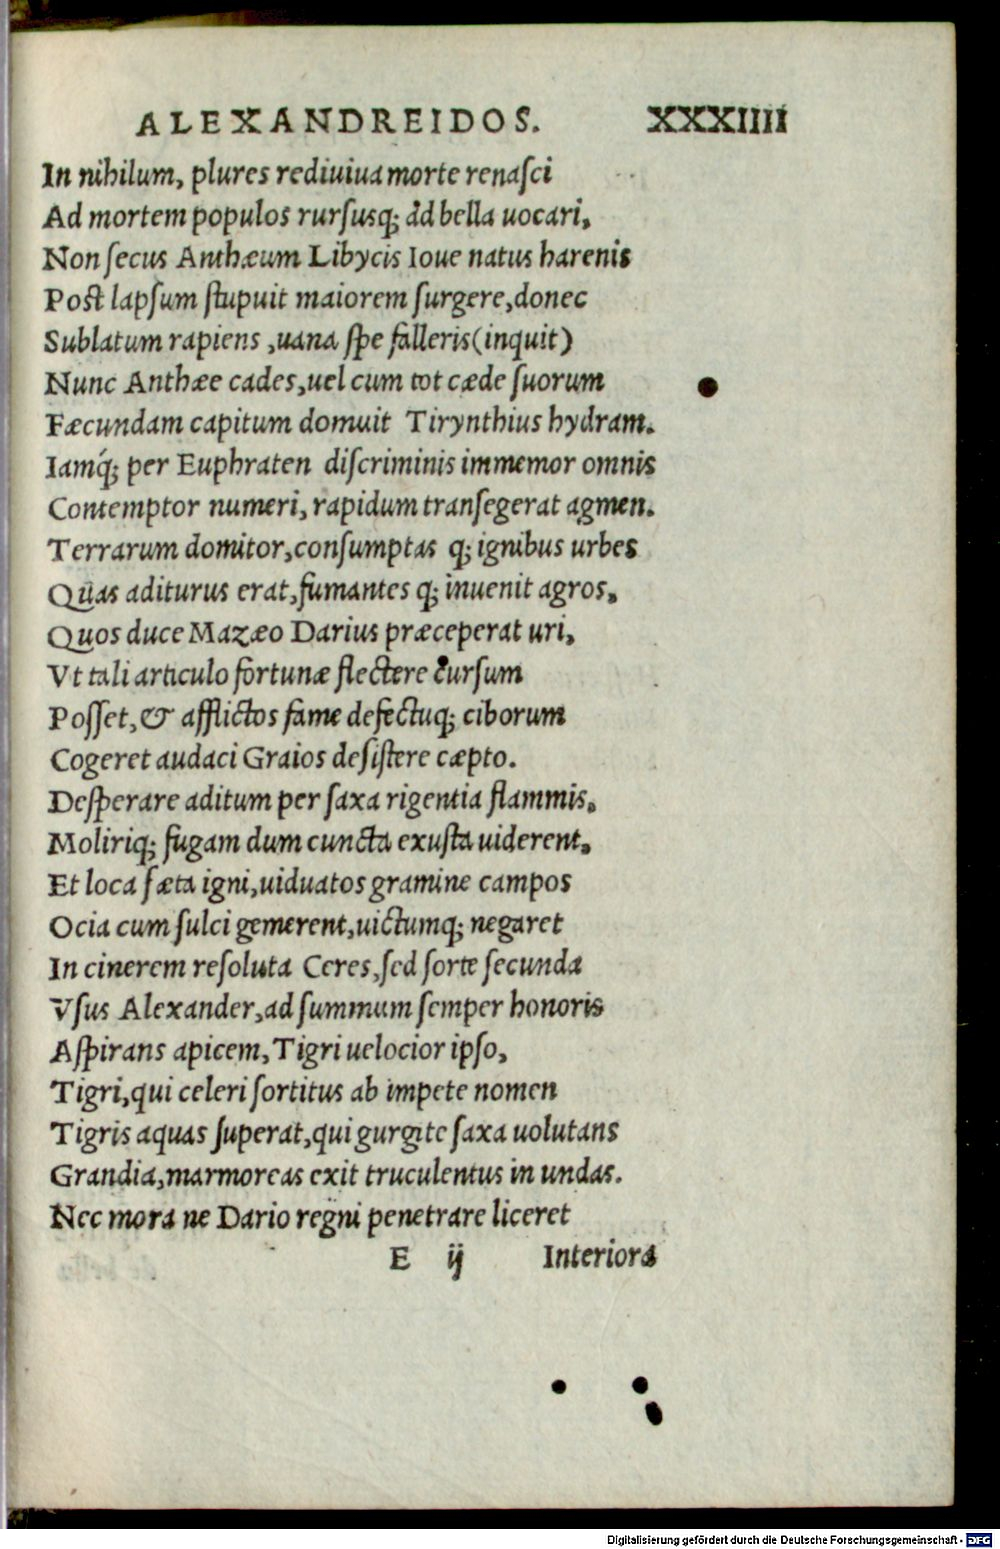 ALEXANDREIDOS. XXXIIII
In nihilum, plures rediuiua morte renaſci
Ad mortem populos rurſusq; ad bella uocari,
Non ſecus Anthæum Libycis Ioue natus harenis
Poſt lapſum ſtupuit maiorem ſurgere, donec
Sublatum rapiens ,uana ſpe falleris(inquit)
Nunc Anthæe cades, uel cum tot cæde ſuorum
Fæcundam capitum domuit Tirynthius hydram.
Iamq́; per Euphraten diſcriminis immemor omnis
Contemptor numeri, rapidum tranſegerat agmen.
Terrarum domitor, conſumptas q; ignibus urbes
Quas aditurus erat, fumantes q; inuenit agros,
Quos duce Mazæo Darius præceperat uri,
Vt tali articulo fortunæ flectere curſum
Poſſet, & afflictos fame defectuq; ciborum
Cogeret audaci Graios deſiſtere cæpto.
Deſperare aditum per ſaxa rigentia flammis,
Moliriq; fugam dum cuncta exuſta uiderent,
Et loca fæta igni, uiduatos gramine campos
Ocia cum ſulci gemerent, uictumq; negaret
In cinerem reſoluta Ceres, ſed ſorte ſecunda
Vſus Alexander, ad ſummum ſemper honoris
Aſpirans apicem, Tigri uelocior ipſo,
Tigri, qui celeri ſortitus ab impete nomen
Tigris aquas ſuperat, qui gurgite ſaxa uolutans
Grandia, marmoreas exit truculentus in undas.
Nec mora ne Dario regni penetrare liceret
E ij Interiora
Digitalisierung gefördert durch die Deutsche Forschungsgemeinschaft - DFG